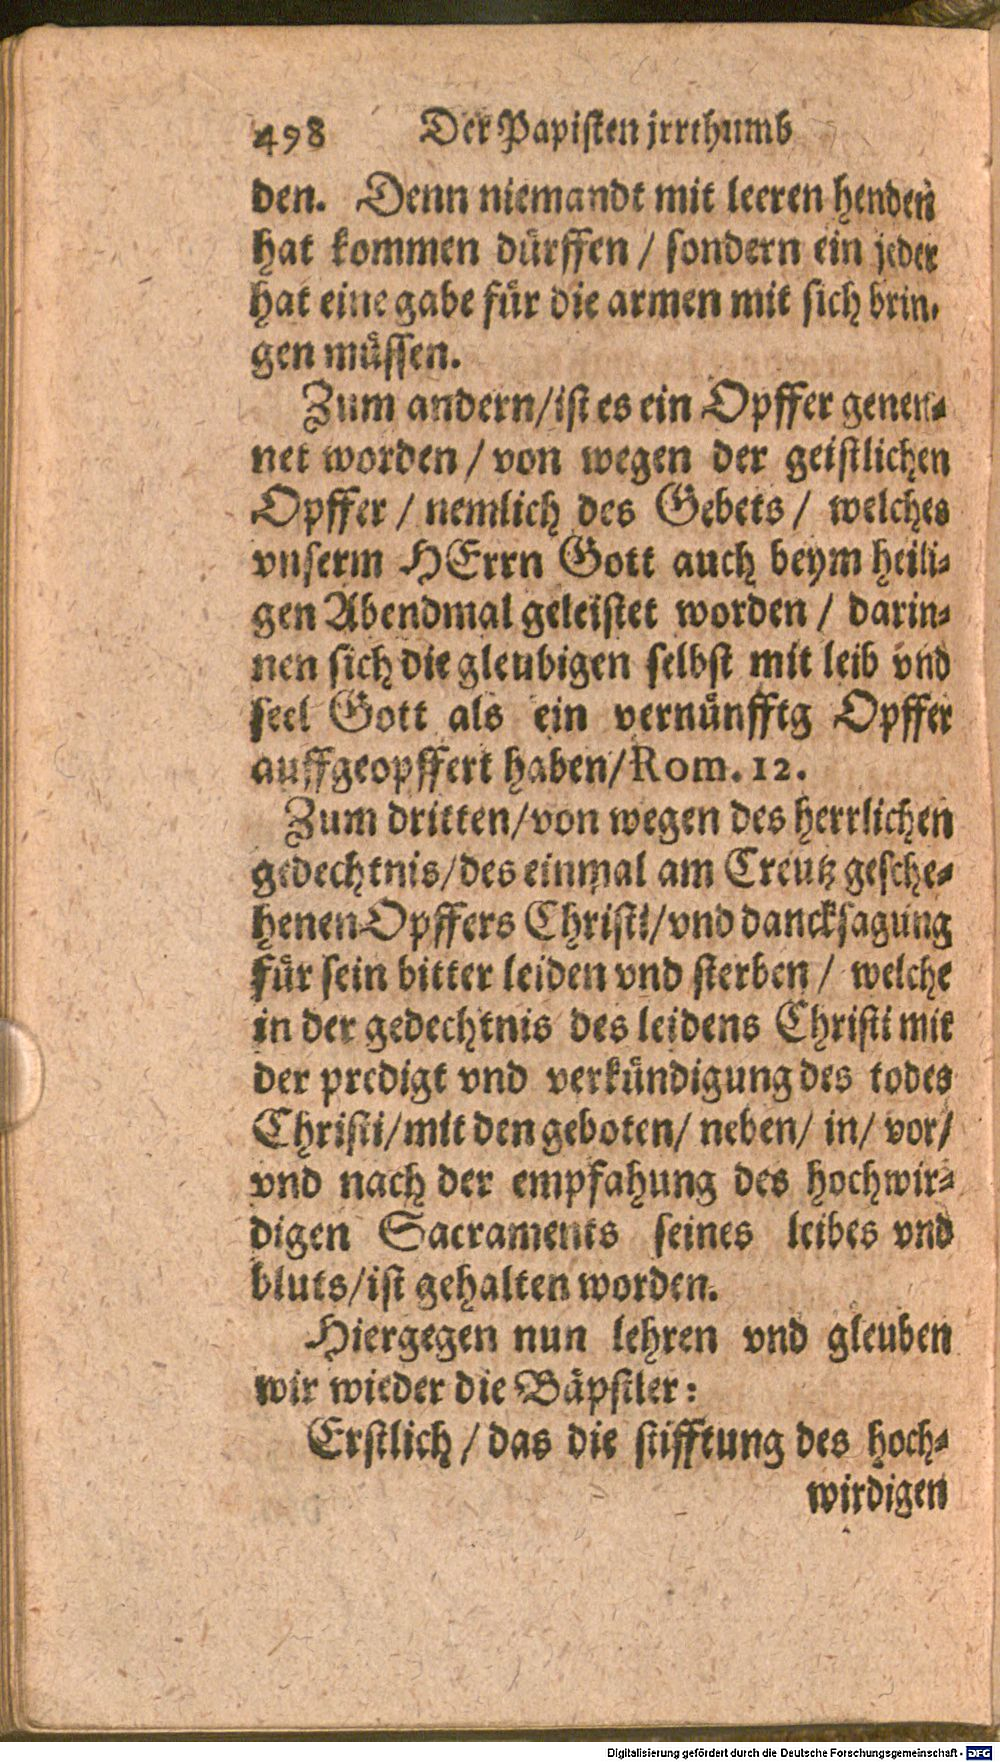 498 Der Papisten jrrthumb
den. Denn niemandt mit leeren henden
hat kommen dürffen / sondern ein jeder
hat eine gabe für die armen mit sich brin-
gen müssen.
Zum andern/ist es ein Opffer genen-
net worden / von wegen der geistlichen
Opffer / nemlich des Gebets / welches
vnserm HErrn Gott auch beym heili-
gen Abendmal geleistet worden / darin-
nen sich die gleubigen selbst mit leib vnd
seel Gott als ein vernünfftg Opffer
auffgeopffert haben/Rom. 12.
Zum dritten/von wegen des herrlichen
gedechtnis/des einmal am Creutz gesche-
henen Opffers Christi/vnd dancksagung
für sein bitter leiden vnd sterben / welche
in der gedechtnis des leidens Christi mit
der predigt vnd verkündigung des todes
Christi/mit den geboten/ neben/ in/ vor/
vnd nach der empfahung des hochwir-
digen Sacraments seines leibes vnd
bluts/ist gehalten worden.
Hiergegen nun lehren vnd gleuben
wir wieder die Bäpstler:
Erstlich / das die stifftung des hoch-
wirdigen
Digitalisierung gefördert durch die Deutsche Forschungsgemeinschaft - DFG